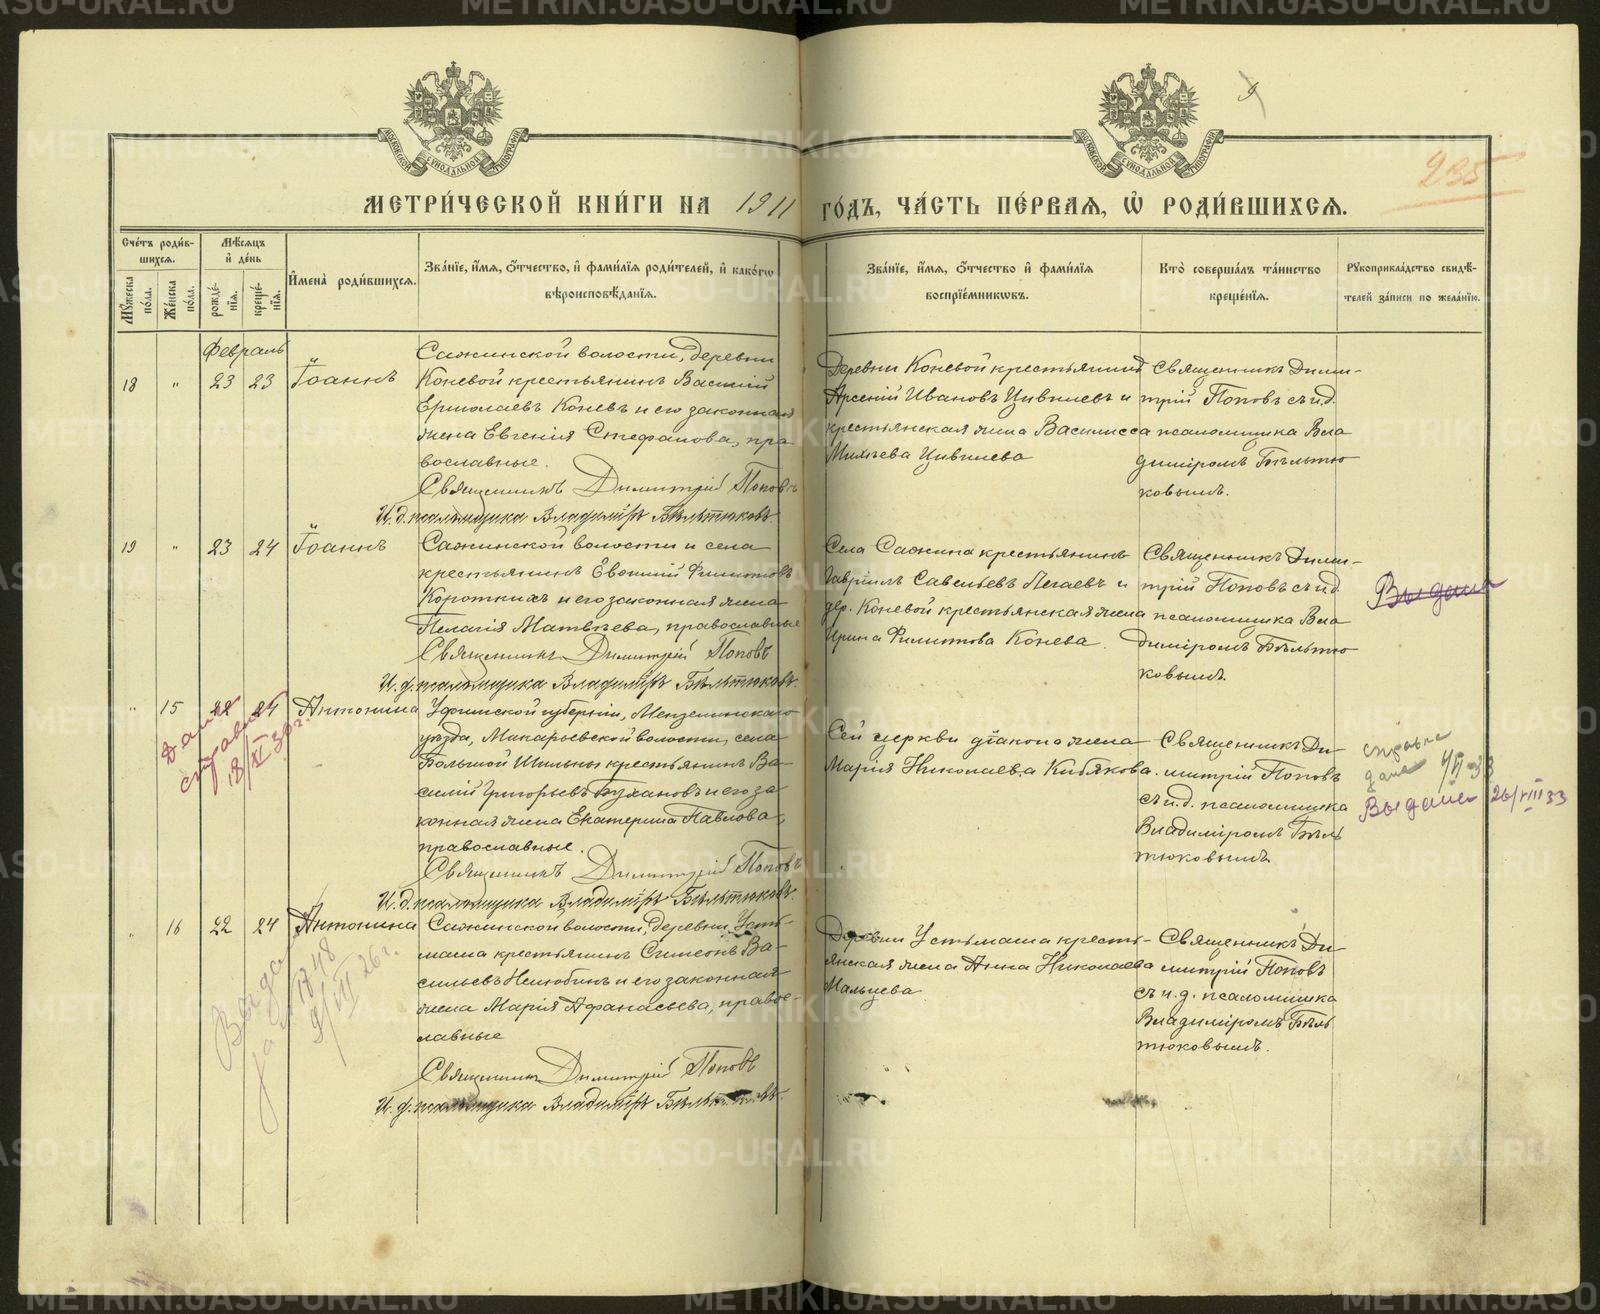 МЕТРИ́ЧЕСКОЙ КНИ́ГИ НА 1911 ГО́ДЪ, ЧА́СТЬ ПЕ́РВАЯ, Ѡ РОДИ́ВШИХСЯ.
235
Сче́тъ роди́в-
шихся.
Мꙋ́жеска по́ла.
Же́нска по́ла.
Мѣ́сяцъ и де́нь
рожде́нія.
креще́нія.
И҆мена̀ роди́вшихся.
Зва́нїе, и҆́мя, ѻ҆́тчество, и҆ фами́лїя роди́телей, и҆ како́гѡ
вѣроисповѣ́данїя.
Зва́нїе, и҆́мя, ѻ҆́тчество и҆ фами́лїя
воспрїе́мникѡвъ.
Кто̀ соверша́лъ та́инство
креще́нїя.
Рꙋкоприкла́дство свидѣ́-
телей за́писи по жела́нїю.
Февраль
18 " 23 23 Іоаннъ
Сажинской волости, деревни
Коневой крестьянинъ Василій
Ермолаевъ Коневъ и его законная
жена Евгенія Стефанова, пра-
вославные.
Священникъ Димитрій Поповъ
И. д. псаломщика Владиміръ Бѣльтюковъ.
Деревни Коневой крестьянинъ
Арсеній Ивановъ Цивилевъ и
крестьянская жена Василисса
Михѣева Цивилева
Священникъ Дими-
трій Поповъ съ и.д.
псаломщика Вла
диміромъ Бѣльтю
ковымъ.
19 " 23 24 Іоаннъ
Сажинской волости и села
крестьянинъ Евѳимій Филиповъ
Короткихъ и его законная жена
Пелагія Матвѣева, православные
Священникъ Димитрій Поповъ
И. д. псаломщика Владиміръ Бѣльтюковъ.
Села Сажина крестьянинъ
Гавріилъ Савельевъ Пегаевъ и
дер. Коневой крестьянская жена
Ирина Филиппова Конева.
Священникъ Дими-
трій Поповъ съ и.д.
псаломщика Вла
диміромъ Бѣльтю
ковымъ.
Выдана
" 15 22 24 Антонина
Дана
справка
18/XI 30 г.
Уфимской губерніи, Мензелинскаго
уѣзда, Макарьевской волости, села
Большой Шильны крестьянинъ Ва-
силій Григорьевъ Бухановъ и его за
конная жена Екатерина Павлова,
православные.
Священникъ Димитрій Поповъ
И. д. псаломщика Владиміръ Бѣльтюковъ.
Сей церкви діакона жена
Марія Николаева Кибякова.
Священникъ Ди-
митрій Поповъ
съ и.д. псаломщика
Владиміромъ Бѣль
тюковымъ.
справка
дана 4/VI-33
Выдана 26/VIII 33
" 16 22 24 Антонина
Выдана
за № 1848
9/VIII 26 г.
Сажинской волости, деревни Усть-
маша крестьянинъ Симеонъ Ва-
сильевъ Нелюбинъ и его законная
жена Марія Афанасьева, правос-
лавные
Священникъ Димитрій Поповъ
И. д. псаломщика Владиміръ Бѣльтюковъ.
Деревни Устьмаша кресть-
янская жена Анна Николаева
Мальцева.
Священникъ Ди-
митрій Поповъ
съ и. д. псаломщика
Владиміромъ Бѣль
тюковымъ.
METRIKI.GASO-URAL.RU